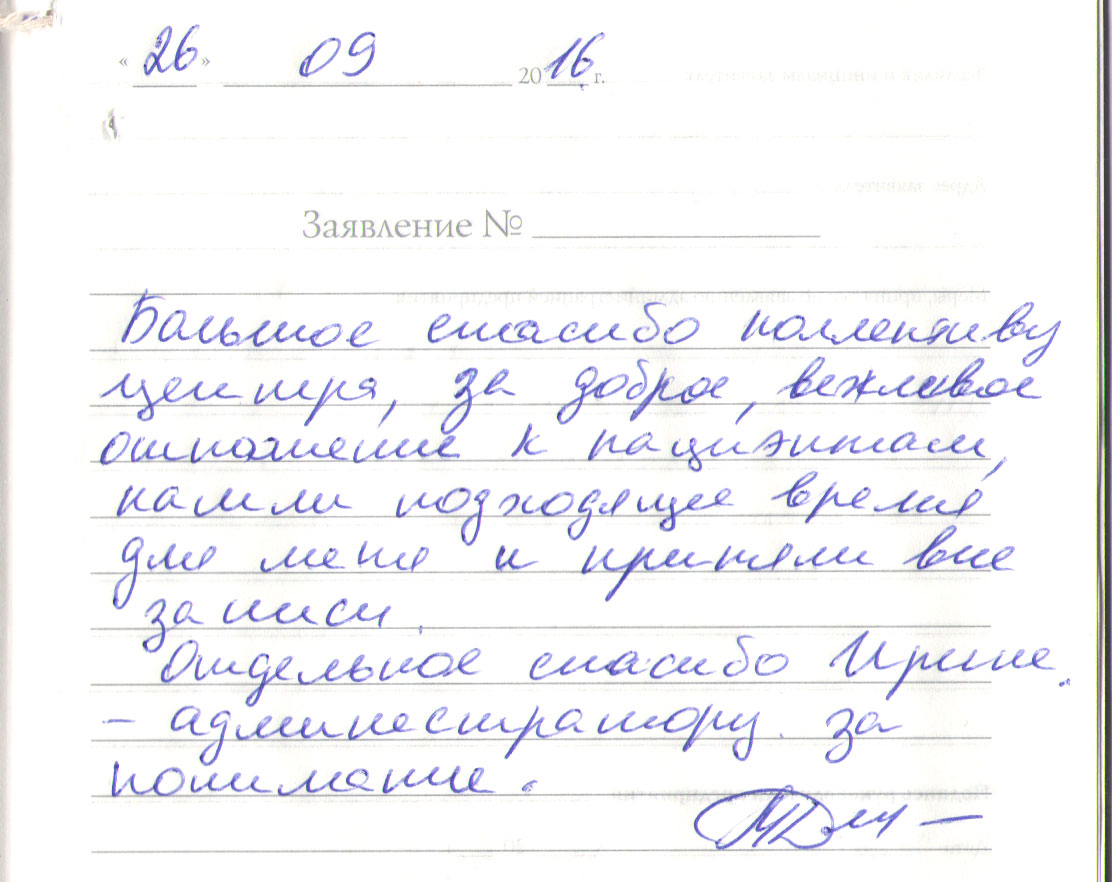 « 26 » 09 2016 г.
Заявление №
Большое спасибо коллективу
центра, за доброе, вежливое
отношение к пациэнтам,
нашли подходящее время
для меня и приняли вне
записи.
Отдельное спасибо Ирине.
– админестратору за
понимание.